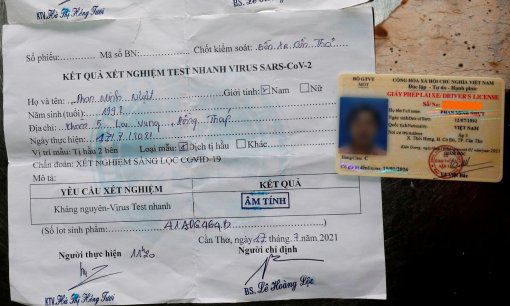 KTV. Hà Thị Hồng Tươi
Số phiếu:
Mã số BN:
Chốt kiểm soát: Bến xe Cần Thơ
KẾT QUẢ XÉT NGHIỆM TEST NHANH VIRUS SARS-CoV-2
Họ và tên: Phan Minh Nhựt
Giới tính: Nam Nữ
Năm sinh(tuổi):
Địa chỉ: Lai Vung, Đồng Tháp
Ngày thực hiện: 17.7.2021
Vị trí mẫu: Tị hầu 2 bên Loại mẫu: Dịch tị hầu Khác:
Chẩn đoán: XÉT NGHIỆM SÀNG LỌC COVID-19
Mô tả:
YÊU CẦU XÉT NGHIỆM KẾT QUẢ
Kháng nguyên-Virus Test nhanh ÂM TÍNH
(Số lot sinh phẩm:
Cần Thơ, ngày 17 tháng 7 năm 2021
Người thực hiện 11h20 Người chỉ định
KTV. Hà Thị Hồng Tươi BS. Lê Hoàng Lộc
BỘ GTVT
MOT
CỘNG HÒA XÃ HỘI CHỦ NGHĨA VIỆT NAM
Độc lập - Tự do - Hạnh phúc
GIẤY PHÉP LÁI XE/DRIVER'S LICENSE
Số/No:
PHAN MINH NHỰT
VIỆT NAM
Hạng/Class: C
Lê Việt Bắc